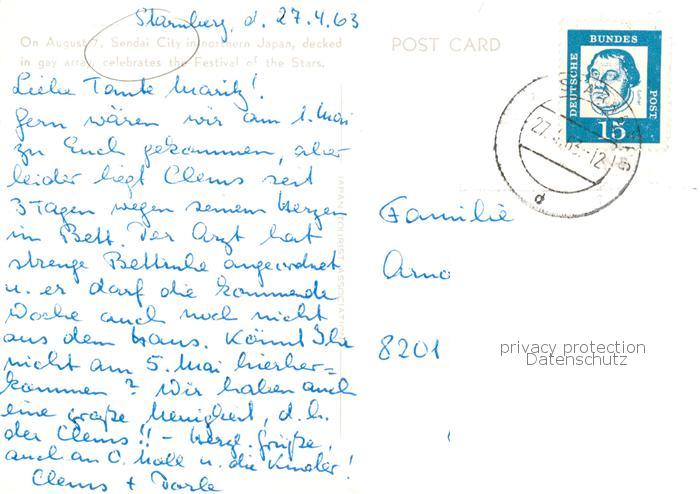 Starnberg, d. 27.4.63
On August 7, Sendai City in northern Japan, decked
in gay array celebrates the Festival of the Stars.
POST CARD
DEUTSCHE
BUNDES
POST
15
27.4.63-12
d
Liebe Tante Maritz!
Gern wären wir am 1. Mai
zu Euch gekommen, aber
leider liegt Clems seit
3 Tagen wegen seinem Herzen
im Bett. Der Arzt hat
strenge Bettruhe angeordnet
u. er darf die kommende
Woche auch noch nicht
aus dem Haus. Könnt Ihr
nicht am 5. Mai hierher-
kommen? Wir haben auch
eine große Neuigkeit, d.h.
der Clems!! - Herzl. Grüße,
auch an O. u. die Kinder!
Clems + Dorle
JAPAN TOURIST ASSOCIATION
Familie
Arno
8201
privacy protection
Datenschutz